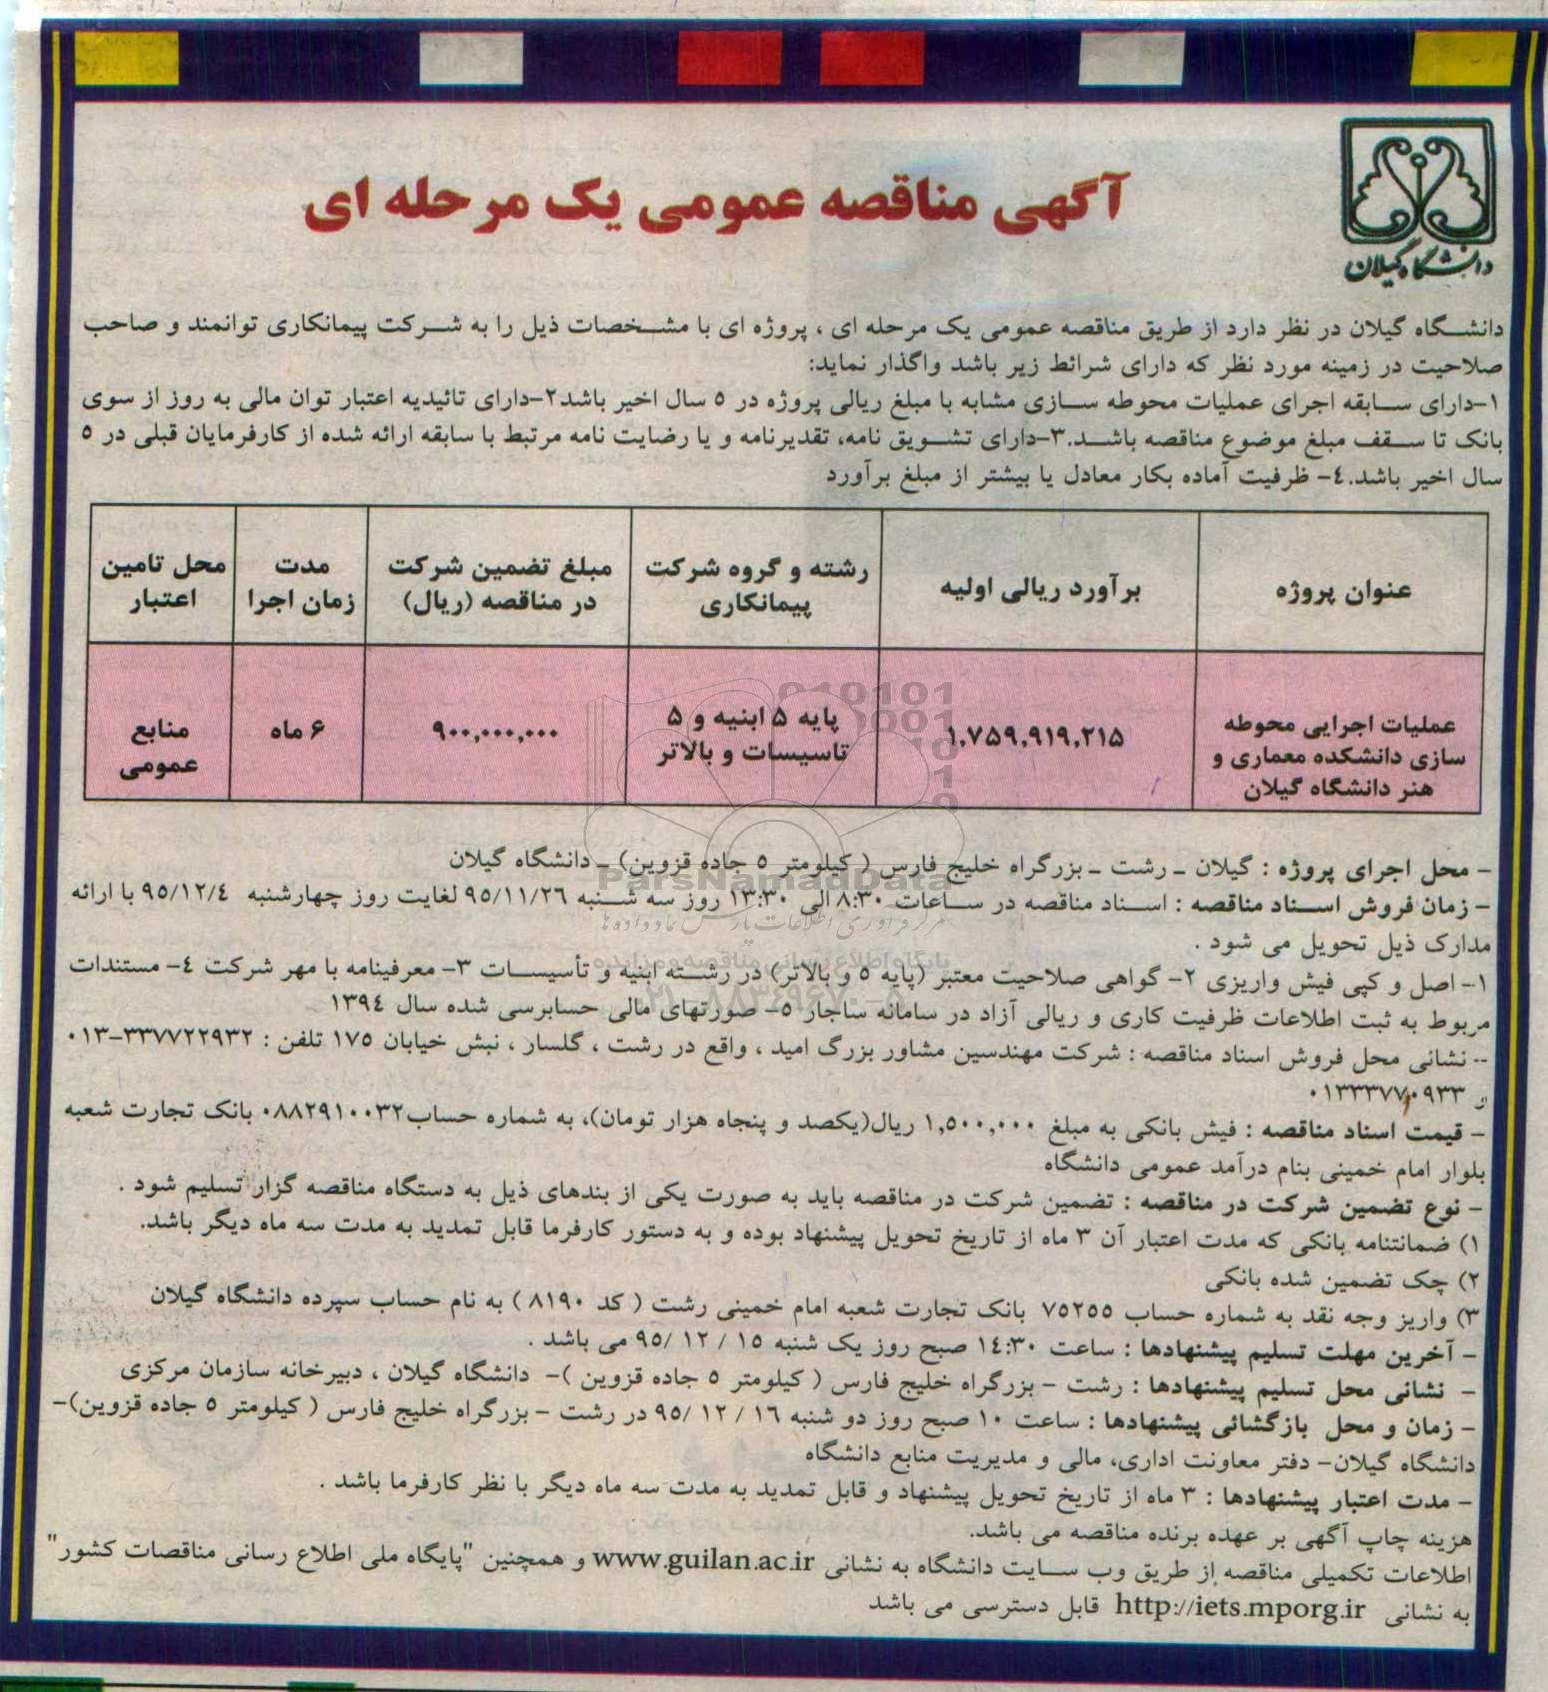 دانشگاه گیلان
آگهی مناقصه عمومی یک مرحله ای
دانشگاه گیلان در نظر دارد از طریق مناقصه عمومی یک مرحله ای ، پروژه ای با مشخصات ذیل را به شرکت پیمانکاری توانمند و صاحب
صلاحیت در زمینه مورد نظر که دارای شرائط زیر باشد واگذار نماید:
۱-دارای سابقه اجرای عملیات محوطه سازی مشابه با مبلغ ریالی پروژه در ۵ سال اخیر باشد۲-دارای تائیدیه اعتبار توان مالی به روز از سوی
بانک تا سقف مبلغ موضوع مناقصه باشد.۳-دارای تشویق نامه، تقدیرنامه و یا رضایت نامه مرتبط با سابقه ارائه شده از کارفرمایان قبلی در ۵
سال اخیر باشد.٤- ظرفیت آماده بکار معادل یا بیشتر از مبلغ برآورد
عنوان پروژه
برآورد ریالی اولیه
رشته و گروه شرکت
پیمانکاری
مبلغ تضمین شرکت
در مناقصه (ریال)
مدت
زمان اجرا
محل تامین
اعتبار
عملیات اجرایی محوطه
سازی دانشکده معماری و
هنر دانشگاه گیلان
۱,۷۵۹,۹۱۹,۲۱۵
پایه ۵ ابنیه و ۵
تاسیسات و بالاتر
۹۰۰,۰۰۰,۰۰۰
۶ ماه
منابع
عمومی
- محل اجرای پروژه : گیلان ـ رشت ـ بزرگراه خلیج فارس ( کیلومتر ۵ جاده قزوین) ـ دانشگاه گیلان
- زمان فروش اسناد مناقصه : اسناد مناقصه در ساعات ۸:۳۰ الی ۱۳:۳۰ روز سه شنبه ۹۵/۱۱/۲٦ لغایت روز چهارشنبه ۹۵/۱۲/٤ با ارائه
مدارک ذیل تحویل می شود .
۱- اصل و کپی فیش واریزی ۲- گواهی صلاحیت معتبر (پایه ۵ و بالاتر) در رشته ابنیه و تأسیسات ۳- معرفینامه با مهر شرکت ٤- مستندات
مربوط به ثبت اطلاعات ظرفیت کاری و ریالی آزاد در سامانه ساجار ۵- صورتهای مالی حسابرسی شده سال ۱۳۹٤
-- نشانی محل فروش اسناد مناقصه : شرکت مهندسین مشاور بزرگ امید ، واقع در رشت ، گلسار ، نبش خیابان ۱۷۵ تلفن : ۳۳۷۷۲۲۹۳۲-۰۱۳
و ۰۱۳۳۳۷۷۰۹۳۳
- قیمت اسناد مناقصه : فیش بانکی به مبلغ ۱,۵۰۰,۰۰۰ ریال(یکصد و پنجاه هزار تومان)، به شماره حساب۰۸۸۲۹۱۰۰۳۲ بانک تجارت شعبه
بلوار امام خمینی بنام درآمد عمومی دانشگاه
- نوع تضمین شرکت در مناقصه : تضمین شرکت در مناقصه باید به صورت یکی از بندهای ذیل به دستگاه مناقصه گزار تسلیم شود .
۱) ضمانتنامه بانکی که مدت اعتبار آن ۳ ماه از تاریخ تحویل پیشنهاد بوده و به دستور کارفرما قابل تمدید به مدت سه ماه دیگر باشد.
۲) چک تضمین شده بانکی
۳) واریز وجه نقد به شماره حساب ۷۵۲۵۵ بانک تجارت شعبه امام خمینی رشت ( کد ۸۱۹۰ ) به نام حساب سپرده دانشگاه گیلان
- آخرین مهلت تسلیم پیشنهادها : ساعت ۱٤:۳۰ صبح روز یک شنبه ۱۵ / ۱۲ /۹۵ می باشد .
- نشانی محل تسلیم پیشنهادها : رشت - بزرگراه خلیج فارس ( کیلومتر ۵ جاده قزوین )- دانشگاه گیلان ، دبیرخانه سازمان مرکزی
- زمان و محل بازگشائی پیشنهادها : ساعت ۱۰ صبح روز دو شنبه ۱٦ / ۱۲ /۹۵ در رشت - بزرگراه خلیج فارس ( کیلومتر ۵ جاده قزوین)-
دانشگاه گیلان- دفتر معاونت اداری، مالی و مدیریت منابع دانشگاه
- مدت اعتبار پیشنهادها : ۳ ماه از تاریخ تحویل پیشنهاد و قابل تمدید به مدت سه ماه دیگر با نظر کارفرما باشد .
هزینه چاپ آگهی بر عهده برنده مناقصه می باشد.
اطلاعات تکمیلی مناقصه از طریق وب سایت دانشگاه به نشانی www.guilan.ac.ir و همچنین "پایگاه ملی اطلاع رسانی مناقصات کشور"
به نشانی http://iets.mporg.ir قابل دسترسی می باشد
ParsNamadData
پایگاه اطلاع رسانی مناقصه و مزایده